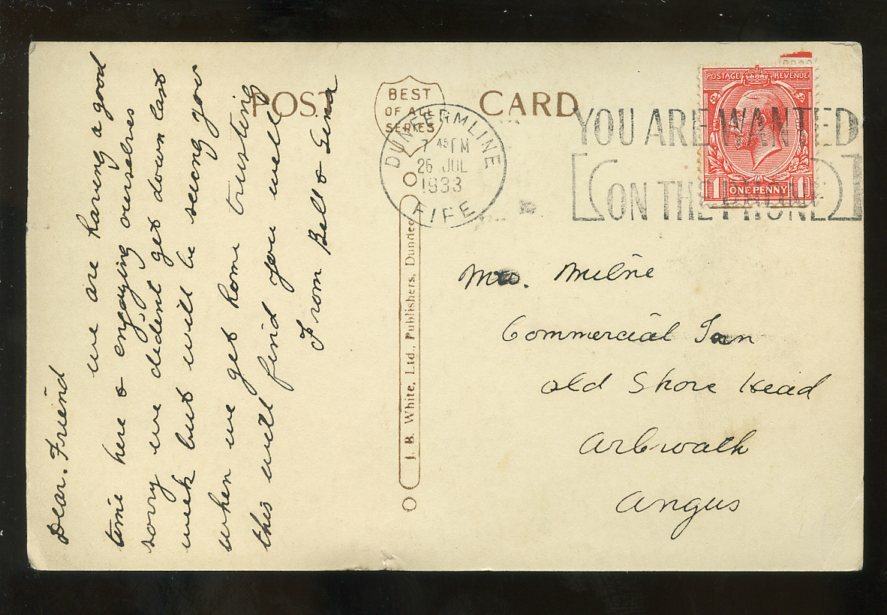 POST CARD
BEST
OF ALL
SERIES
DUNFERMLINE
7 45 PM
26 JUL
1933
FIFE
YOU ARE WANTED
ON THE PHONE
POSTAGE REVENUE
1 ONE PENNY 1
Dear. Friend
we are having a good
time here & engaying ourselves
sorry we dident get down last
week but will be seing you
when we get home trusting
this will find you well
From Bell &
J. B. White, Ltd., Publishers, Dundee
Mrs. Milne
Commercial Inn
Old Shore Head
Arbroath
Angus